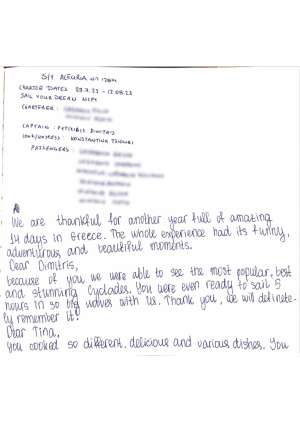 S/Y ALEURIA
CHARTER DATES 29.7.23 - 12.08.23
SAIL YOUR DREAM NEPA
CHARTERER:
CAPTAIN: DIMITRIS
COOK/HOSTESS: KONSTANTINA
PASSENGERS:
We are thankful for another year full of amazing
14 days in Greece. The whole experience had its funny,
adventurous and beautiful moments.
Dear Dimitris,
because of you we were able to see the most popular, best
and stunning Cyclades. You were even ready to sail 5
hours in so big waves with us. Thank you, we will definate-
ly remember it!
Dear Tina,
you cooked so different, delicious and various dishes. You